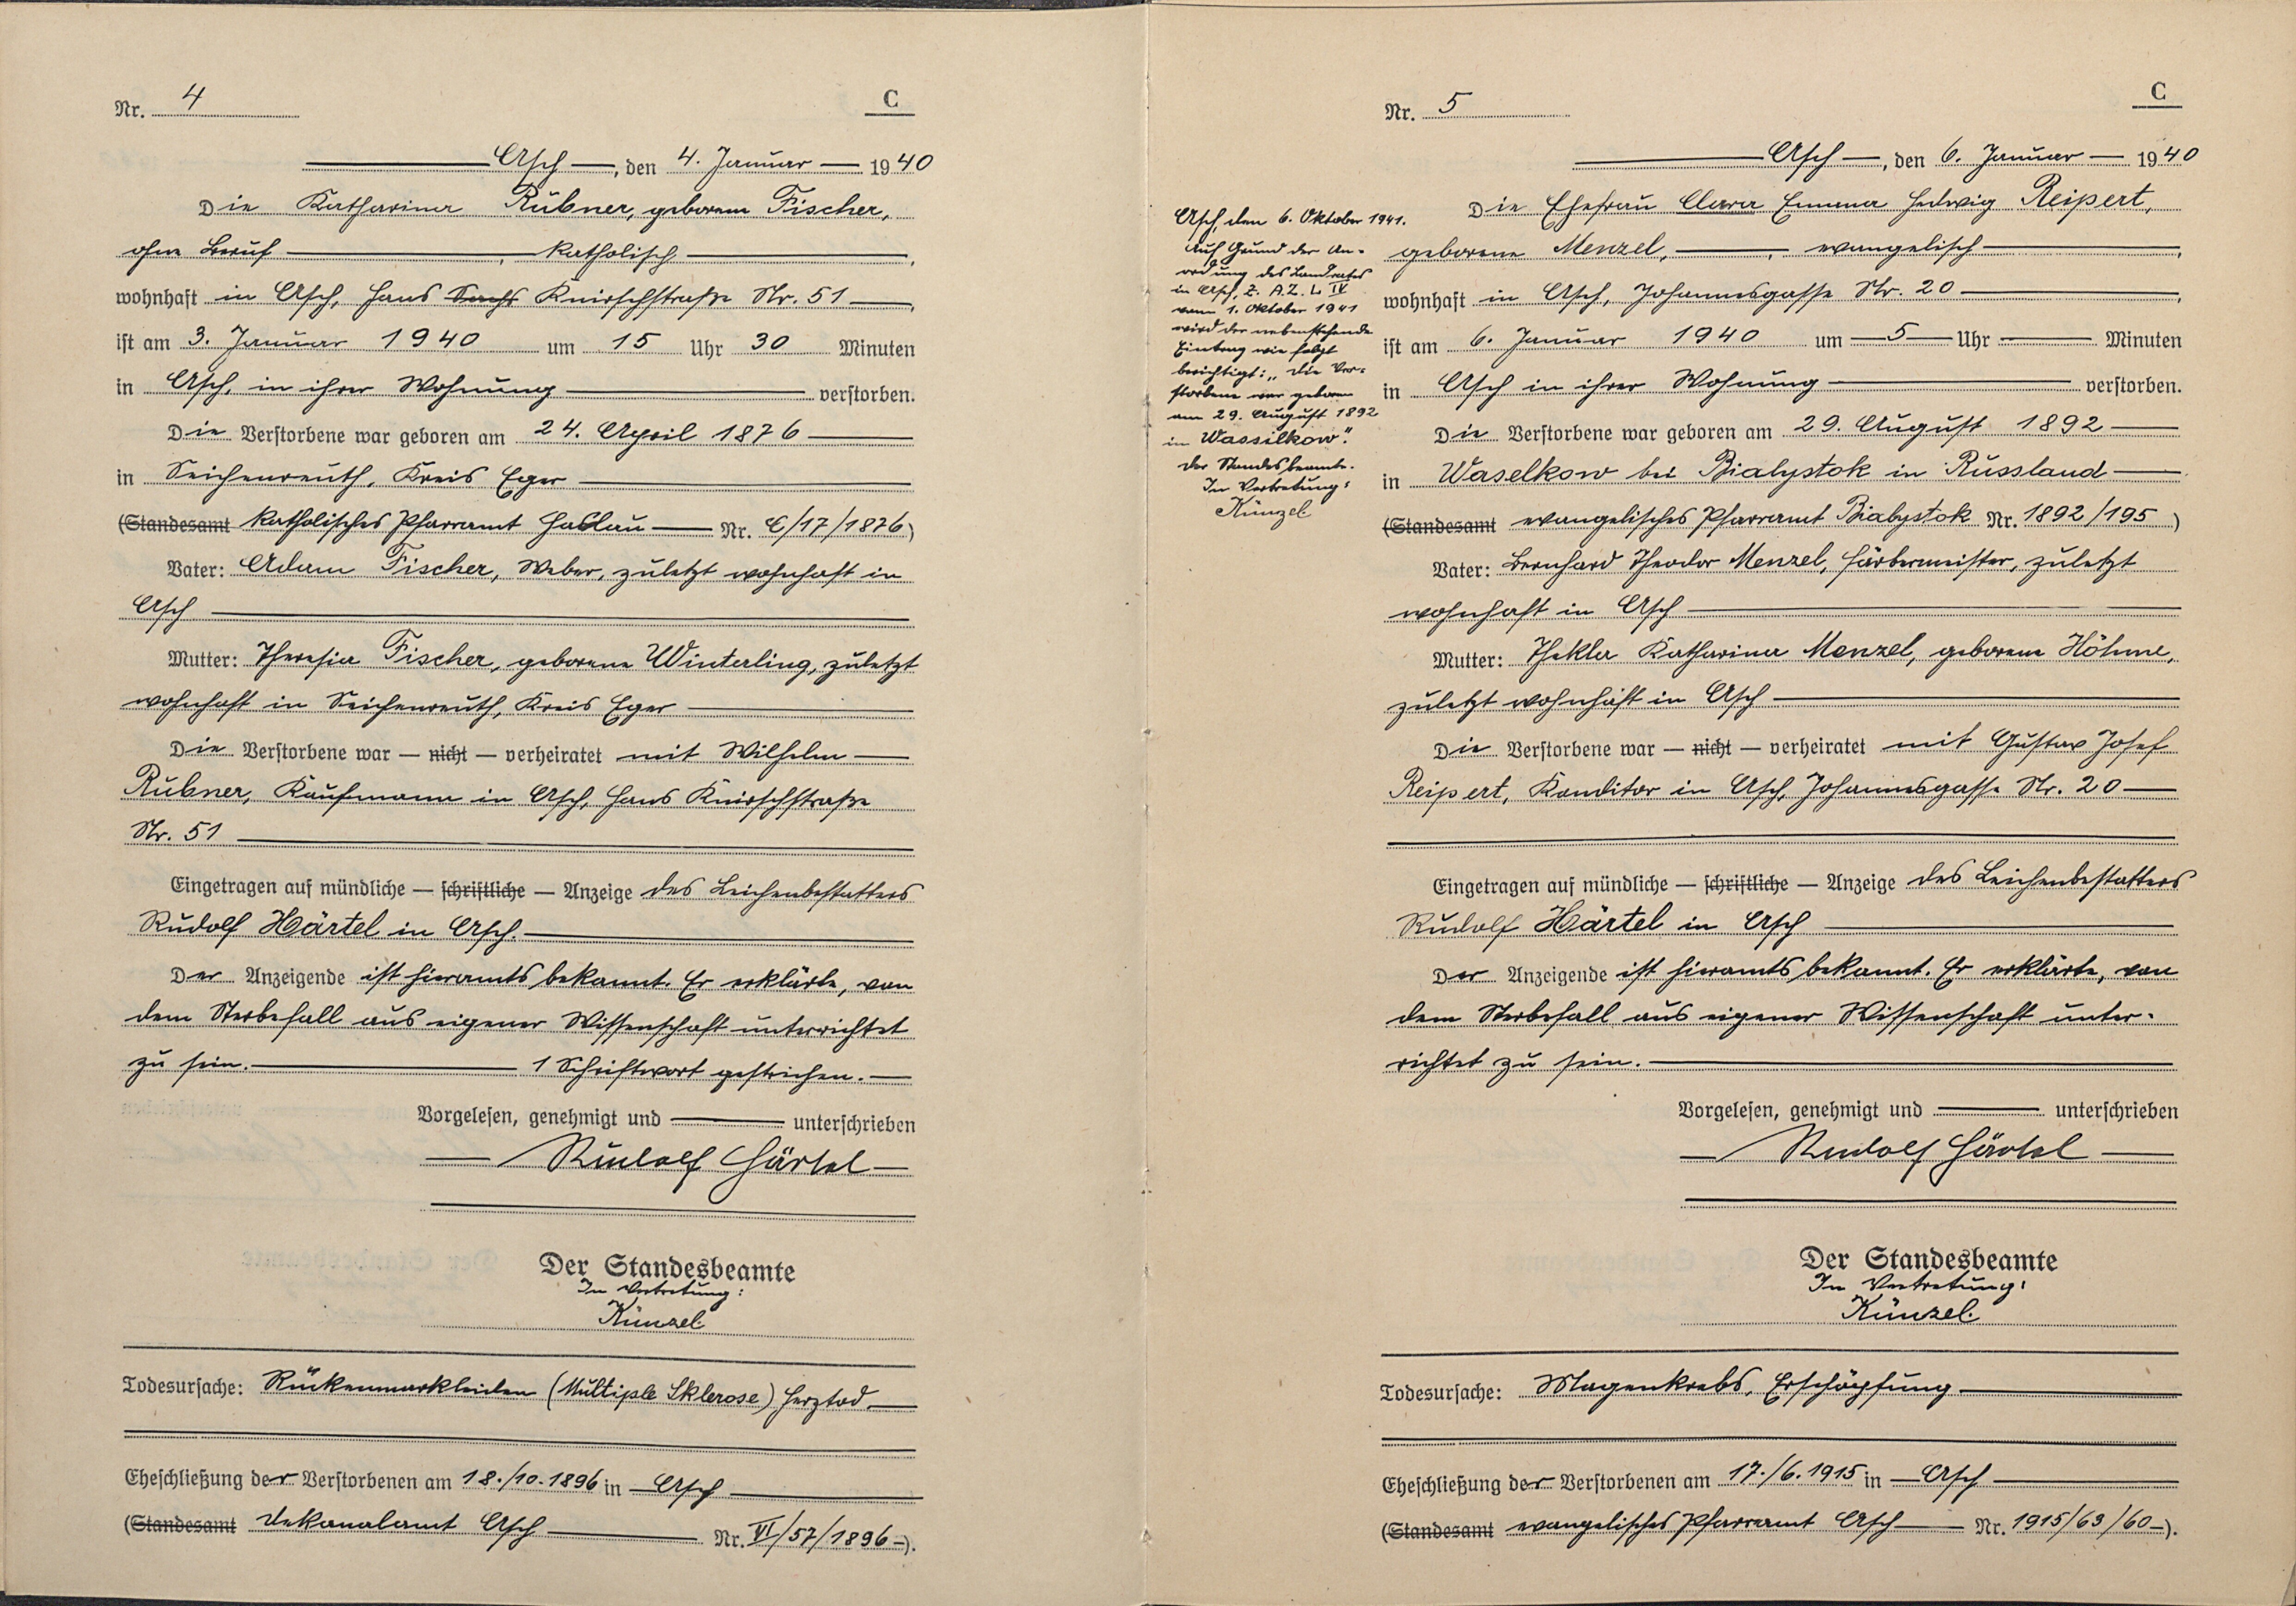 Nr. 4
C
Asch, den 4. Januar 1940
Die Katharina Rubner, geborene Fischer,
ohne Beruf, katholisch,
wohnhaft in Asch, Hans Sachs Knirschstraße Nr. 51,
ist am 3. Januar 1940 um 15 Uhr 30 Minuten
in Asch, in ihrer Wohnung verstorben.
Die Verstorbene war geboren am 24. April 1876
in Seichenreuth, Kreis Eger
(Standesamt katholisches Pfarramt Haslau Nr. E/17/1876)
Vater: Adam Fischer, Weber, zuletzt wohnhaft in
Asch
Mutter: Theresia Fischer, geborene Winterling, zuletzt
wohnhaft in Seichenreuth, Kreis Eger
Die Verstorbene war — nicht — verheiratet mit Wilhelm
Rubner, Kaufmann in Asch, Hans Knirschstraße
Nr. 51
Eingetragen auf mündliche — schriftliche — Anzeige des Leichenbestatters
Rudolf Härtel in Asch.
Der Anzeigende ist hieramts bekannt. Er erklärte, von
dem Sterbefall aus eigener Wissenschaft unterrichtet
zu sein. 1 Schriftwort gestrichen.
Vorgelesen, genehmigt und unterschrieben
Rudolf Härtel
Der Standesbeamte
In Vertretung:
Künzel
Todesursache: Rückenmarkleiden (Multiple Sklerose) Herztod.
Eheschließung der Verstorbenen am 18./10.1896 in Asch
(Standesamt Dekanalamt Asch Nr. VI/57/1896).
Nr. 5
C
Asch, den 6. Januar 1940
Die Ehefrau Clara Emma Hedwig Reipert,
geborene Menzel, evangelisch,
wohnhaft in Asch, Johannesgasse Nr. 20,
ist am 6. Januar 1940 um 5 Uhr Minuten
in Asch in ihrer Wohnung verstorben.
Die Verstorbene war geboren am 29. August 1892
in Waselkow bei Bialystok in Russland
(Standesamt evangelisches Pfarramt Bialystok Nr. 1892/195)
Vater: Bernhard Theodor Menzel, Färbermeister, zuletzt
wohnhaft in Asch
Mutter: Thekla Katharina Menzel, geborene Höhme,
zuletzt wohnhaft in Asch
Die Verstorbene war — nicht — verheiratet mit Gustav Josef
Reipert, Konditor in Asch, Johannesgasse Nr. 20
Eingetragen auf mündliche — schriftliche — Anzeige des Leichenbestatters
Rudolf Härtel in Asch
Der Anzeigende ist hieramts bekannt. Er erklärte, von
dem Sterbefall aus eigener Wissenschaft unter-
richtet zu sein.
Vorgelesen, genehmigt und unterschrieben
Rudolf Härtel
Der Standesbeamte
In Vertretung:
Künzel.
Todesursache: Magenkrebs, Erschöpfung
Eheschließung der Verstorbenen am 17./6.1915 in Asch
(Standesamt evangelisches Pfarramt Asch Nr. 1915/63/60).
Asch, den 6. Oktober 1941.
Auf Grund der An-
ordnung des Landrates
in Asch, Z. A.Z. L IV
vom 1. Oktober 1941
wird der nebenstehende
Eintrag wie folgt
berichtigt: „Die Ver-
storbene war geboren
am 29. August 1892
in Wassilkow".
Der Standesbeamte.
In Vertretung:
Künzel